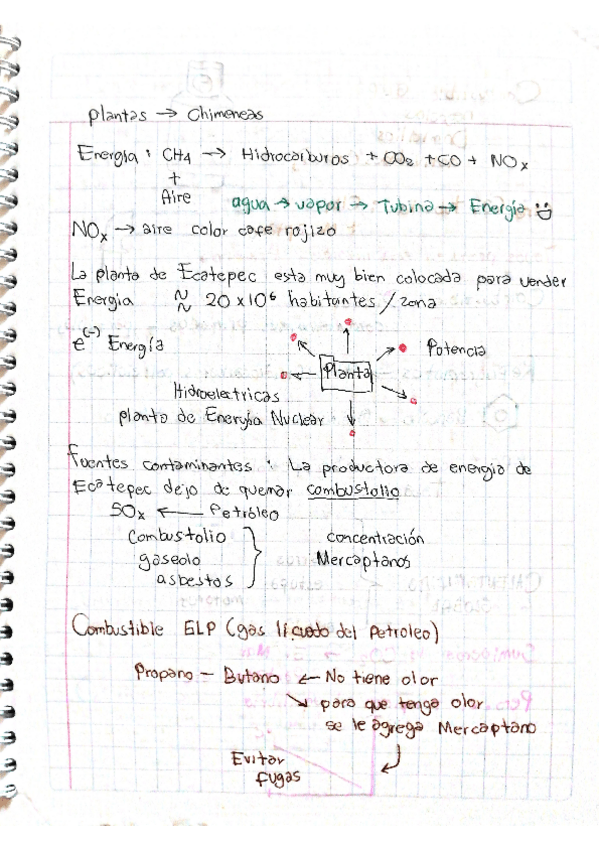 plantas → Chimeneas
Energía : CH4 → Hidrocarburos + CO2 + CO + NOx
+
Aire
agua → vapor → Tubina → Energía
NOx → aire color cafe rojizo
La planta de Ecatepec esta muy bien colocada para vender
Energia ≈ 20 x 10⁶ habitantes / zona
e(-) Energía
Planta
Potencia
Hidroelectricas
planta de Energía Nuclear
Fuentes contaminantes : La productora de energia de
Ecatepec dejo de quemar combustolio
SOx ← Petróleo
Combustolio
gaseolo
asbestos
concentración
Mercaptanos
Combustible GLP (gas licuado del Petroleo)
Propano – Butano ← No tiene olor
↘ para que tenga olor
se le agrega Mercaptano
Evitar
fugas